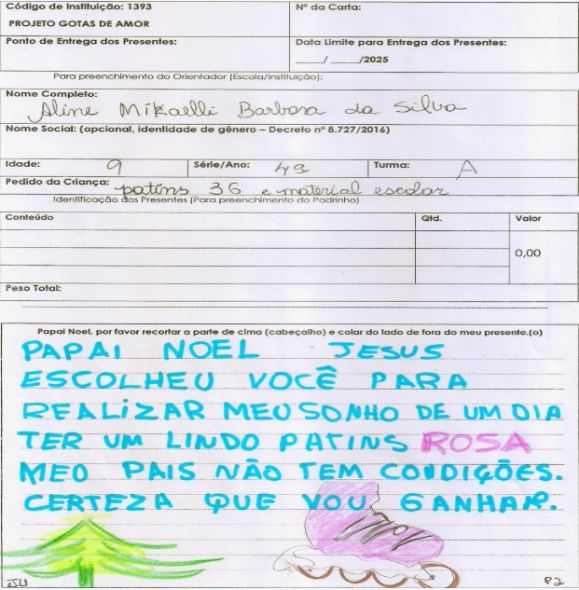 Código de Instituição: 1393 Nº da Carta:
PROJETO GOTAS DE AMOR
Ponto de Entrega dos Presentes: Data Limite para Entrega dos Presentes:
___/___/2025
Para preenchimento do Orientador (Escola/Instituição):
Nome Completo:
Aline Mikaelli Barbosa da Silva
Nome Social: (opcional, identidade de gênero – Decreto nº 8.727/2016)
Idade: 9 Série/Ano: 4º Turma: A
Pedido da Criança: patins 36 e material escolar
Identificação dos Presentes (Para preenchimento do Padrinho)
Conteúdo Qtd. Valor
0,00
Peso Total:
Papai Noel, por favor recortar a parte de cima (cabeçalho) e colar do lado de fora do meu presente.(o)
PAPAI NOEL JESUS
ESCOLHEU VOCÊ PARA
REALIZAR MEU SONHO DE UM DIA
TER UM LINDO PATINS ROSA
MEO PAIS NÃO TEM CONDIÇÕES.
CERTEZA QUE VOU GANHAR.